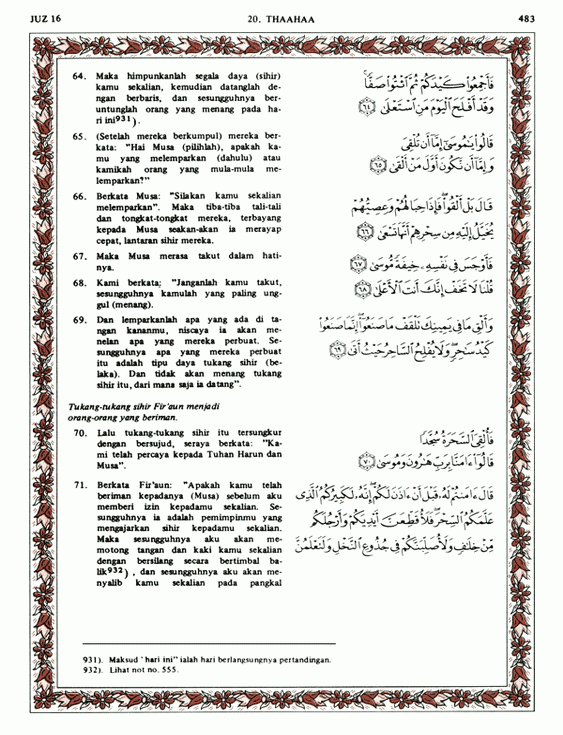 JUZ 16 20. THAAHAA 483
64. Maka himpunkanlah segala daya (sihir)
kamu sekalian, kemudian datanglah de-
ngan berbaris, dan sesungguhnya ber-
untunglah orang yang menang pada ha-
ri ini931).
65. (Setelah mereka berkumpul) mereka ber-
kata: "Hai Musa (pilihlah), apakah ka-
mu yang melemparkan (dahulu) atau
kamikah orang yang mula-mula me-
lemparkan?"
66. Berkata Musa: "Silakan kamu sekalian
melemparkan". Maka tiba-tiba tali-tali
dan tongkat-tongkat mereka, terbayang
kepada Musa seakan-akan ia merayap
cepat, lantaran sihir mereka.
67. Maka Musa merasa takut dalam hati-
nya.
68. Kami berkata; "Janganlah kamu takut,
sesungguhnya kamulah yang paling ung-
gul (menang).
69. Dan lemparkanlah apa yang ada di ta-
ngan kananmu, niscaya ia akan me-
nelan apa yang mereka perbuat. Se-
sungguhnya apa yang mereka perbuat
itu adalah tipu daya tukang sihir (be-
laka). Dan tidak akan menang tukang
sihir itu, dari mana saja ia datang".
Tukang-tukang sihir Fir'aun menjadi
orang-orang yang beriman.
70. Lalu tukang-tukang sihir itu tersungkur
dengan bersujud, seraya berkata: "Ka-
mi telah percaya kepada Tuhan Harun dan
Musa".
71. Berkata Fir'aun: "Apakah kamu telah
beriman kepadanya (Musa) sebelum aku
memberi izin kepadamu sekalian. Se-
sungguhnya ia adalah pemimpinmu yang
mengajarkan sihir kepadamu sekalian.
Maka sesungguhnya aku akan me-
motong tangan dan kaki kamu sekalian
dengan bersilang secara bertimbal ba-
lik932) , dan sesungguhnya aku akan me-
nyalib kamu sekalian pada pangkal
فَأَجْمِعُوا۟ كَيْدَكُمْ ثُمَّ ٱئْتُوا۟ صَفًّا ۚ
وَقَدْ أَفْلَحَ ٱلْيَوْمَ مَنِ ٱسْتَعْلَىٰ ٦٤
قَالُوا۟ يَٰمُوسَىٰٓ إِمَّآ أَن تُلْقِىَ
وَإِمَّآ أَن نَّكُونَ أَوَّلَ مَنْ أَلْقَىٰ ٦٥
قَالَ بَلْ أَلْقُوا۟ ۖ فَإِذَا حِبَالُهُمْ وَعِصِيُّهُمْ
يُخَيَّلُ إِلَيْهِ مِن سِحْرِهِمْ أَنَّهَا تَسْعَىٰ ٦٦
فَأَوْجَسَ فِى نَفْسِهِۦ خِيفَةً مُّوسَىٰ ٦٧
قُلْنَا لَا تَخَفْ إِنَّكَ أَنتَ ٱلْأَعْلَىٰ ٦٨
وَأَلْقِ مَا فِى يَمِينِكَ تَلْقَفْ مَا صَنَعُوٓا۟ ۖ إِنَّمَا صَنَعُوا۟
كَيْدُ سَٰحِرٍ ۖ وَلَا يُفْلِحُ ٱلسَّاحِرُ حَيْثُ أَتَىٰ ٦٩
فَأُلْقِىَ ٱلسَّحَرَةُ سُجَّدًا
قَالُوٓا۟ ءَامَنَّا بِرَبِّ هَٰرُونَ وَمُوسَىٰ ٧٠
قَالَ ءَامَنتُمْ لَهُۥ قَبْلَ أَنْ ءَاذَنَ لَكُمْ ۖ إِنَّهُۥ لَكَبِيرُكُمُ ٱلَّذِى
عَلَّمَكُمُ ٱلسِّحْرَ ۖ فَلَأُقَطِّعَنَّ أَيْدِيَكُمْ وَأَرْجُلَكُم
مِّنْ خِلَٰفٍ وَلَأُصَلِّبَنَّكُمْ فِى جُذُوعِ ٱلنَّخْلِ وَلَتَعْلَمُنَّ
931). Maksud "hari ini" ialah hari berlangsungnya pertandingan.
932). Lihat not no. 555.